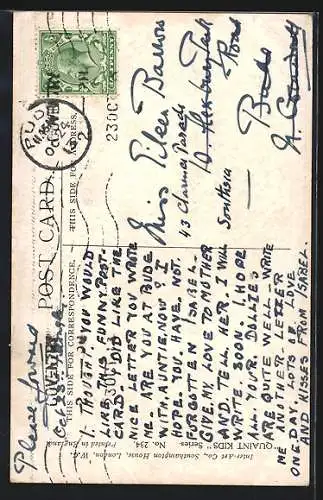 POST CARD
THIS SIDE FOR CORRESPONDENCE.
THIS SIDE FOR ADDRESS.
Please forward
I. THOUGHT. YOU WOULD
LIKE. THIS. FUNNY. POST-
CARD. I DID LIKE THE
NICE LETTER YOU WROTE
ME. ARE YOU AT BUDE
WITH. AUNTIE. NOW? I
HOPE. YOU. HAVE. NOT.
FORGOTTEN ISABEL.
GIVE. MY. LOVE TO MOTHER
AND TELL HER. I WILL
WRITE. SOON. I. HOPE
ALL. YOUR. DOLLIES.
ARE QUITE WELL. WRITE
ME ANOTHER LETTER
ONE. DAY. LOTS. OF. LOVE
AND KISSES FROM ISABEL.
Miss Eileen
43 Clarence Parade
Southsea
Bude
N. Cornwall
BUDE
23 OC
"QUAINT KIDS" Series No. 234.
Inter-Art Co., Southampton House, London, W.C. Printed in England